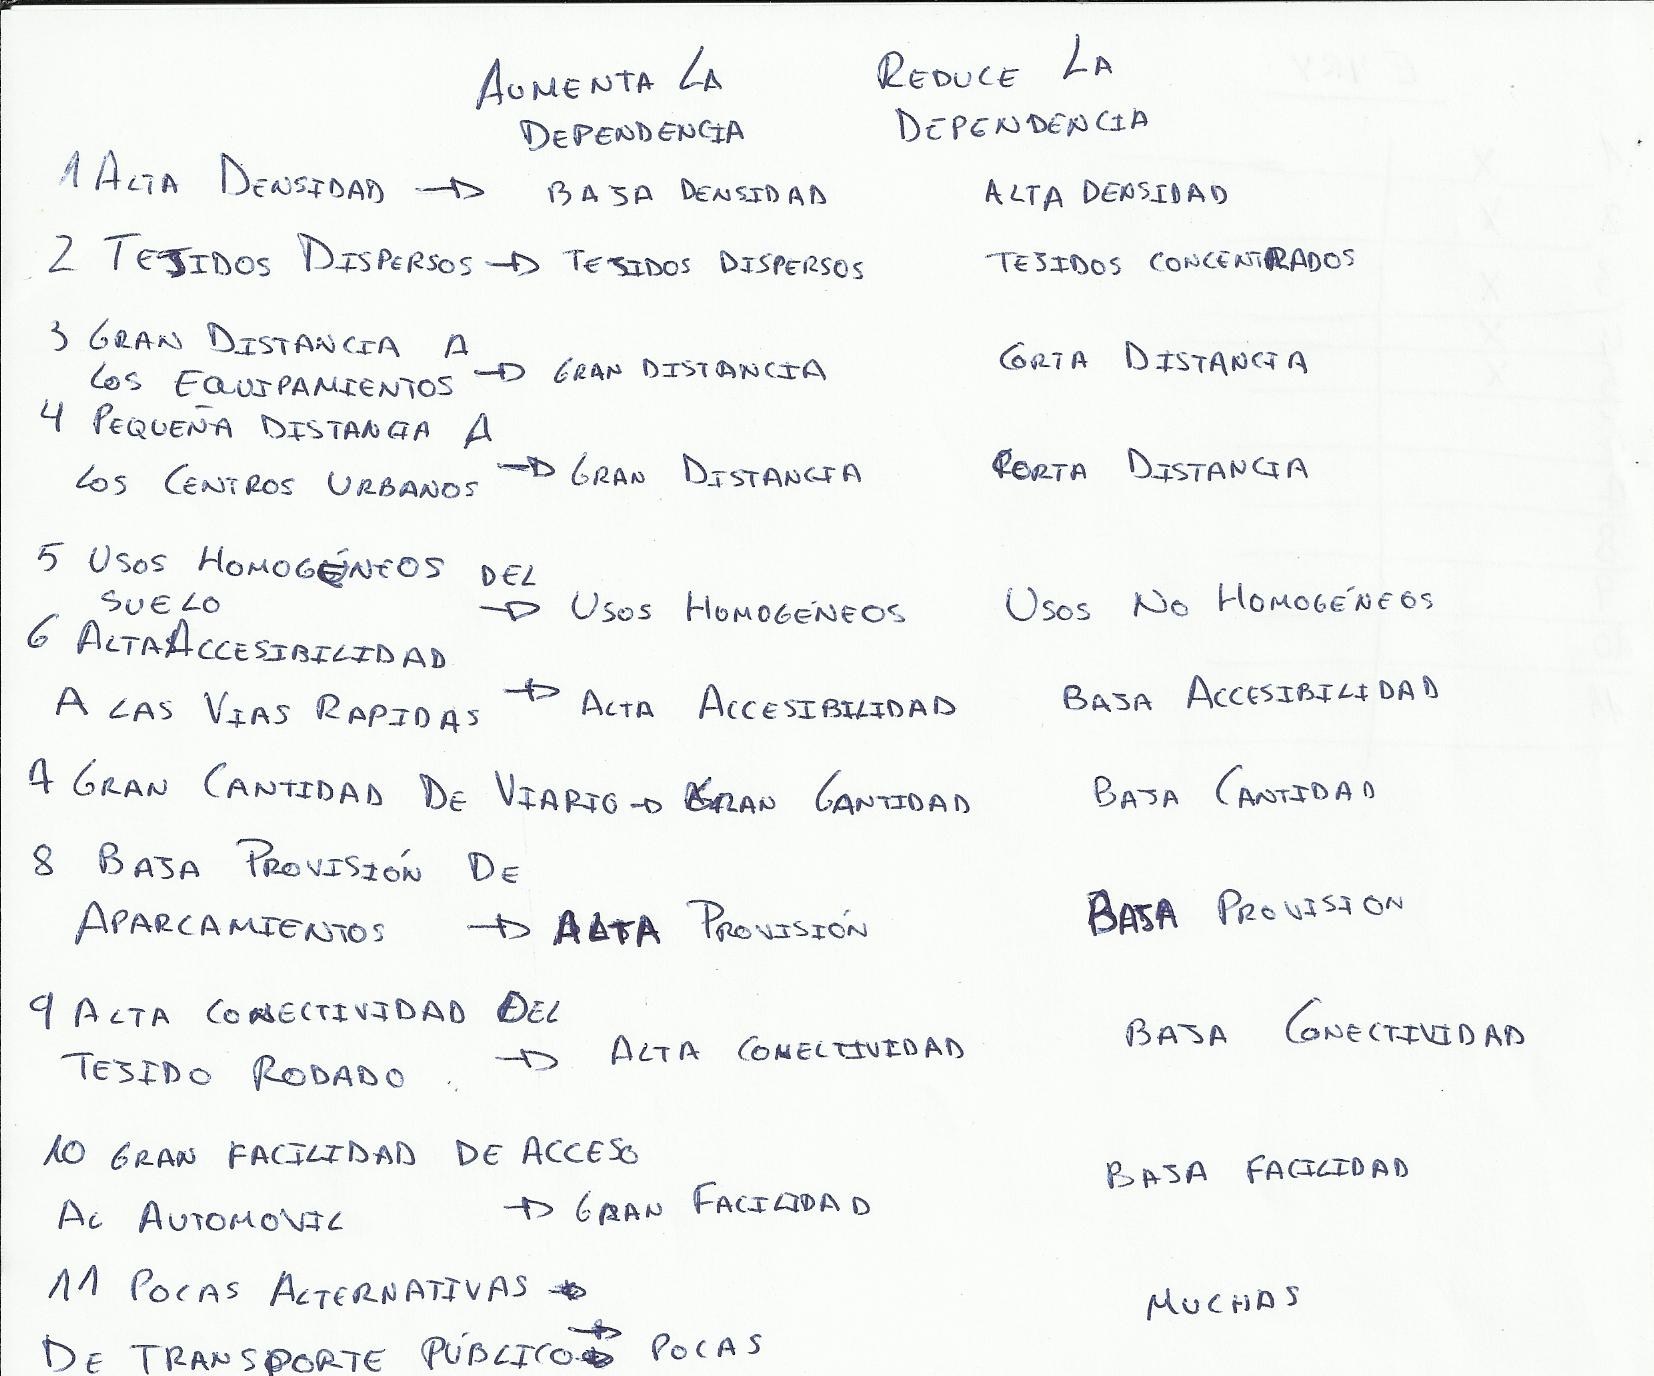 AUMENTA LA REDUCE LA
DEPENDENCIA DEPENDENCIA
1 ALTA DENSIDAD → BAJA DENSIDAD ALTA DENSIDAD
2 TEJIDOS DISPERSOS → TEJIDOS DISPERSOS TEJIDOS CONCENTRADOS
3 GRAN DISTANCIA A
LOS EQUIPAMIENTOS → GRAN DISTANCIA CORTA DISTANCIA
4 PEQUEÑA DISTANCIA A
LOS CENTROS URBANOS → GRAN DISTANCIA CORTA DISTANCIA
5 USOS HOMOGÉNEOS DEL
SUELO → USOS HOMOGÉNEOS USOS NO HOMOGÉNEOS
6 ALTA ACCESIBILIDAD
A LAS VIAS RAPIDAS → ALTA ACCESIBILIDAD BAJA ACCESIBILIDAD
7 GRAN CANTIDAD DE VIARIO → GRAN CANTIDAD BAJA CANTIDAD
8 BAJA PROVISIÓN DE
APARCAMIENTOS → ALTA PROVISIÓN BAJA PROVISION
9 ALTA CONECTIVIDAD DEL
TEJIDO RODADO → ALTA CONECTIVIDAD BAJA CONECTIVIDAD
10 GRAN FACILIDAD DE ACCESO
AL AUTOMOVIL → GRAN FACILIDAD BAJA FACILIDAD
11 POCAS ALTERNATIVAS → MUCHAS
DE TRANSPORTE PÚBLICO → POCAS